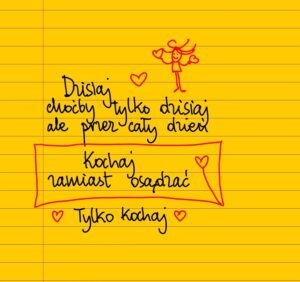 Dzisiaj
choćby tylko dzisiaj
ale przez cały dzień
Kochaj
zamiast osądzać
Tylko kochaj